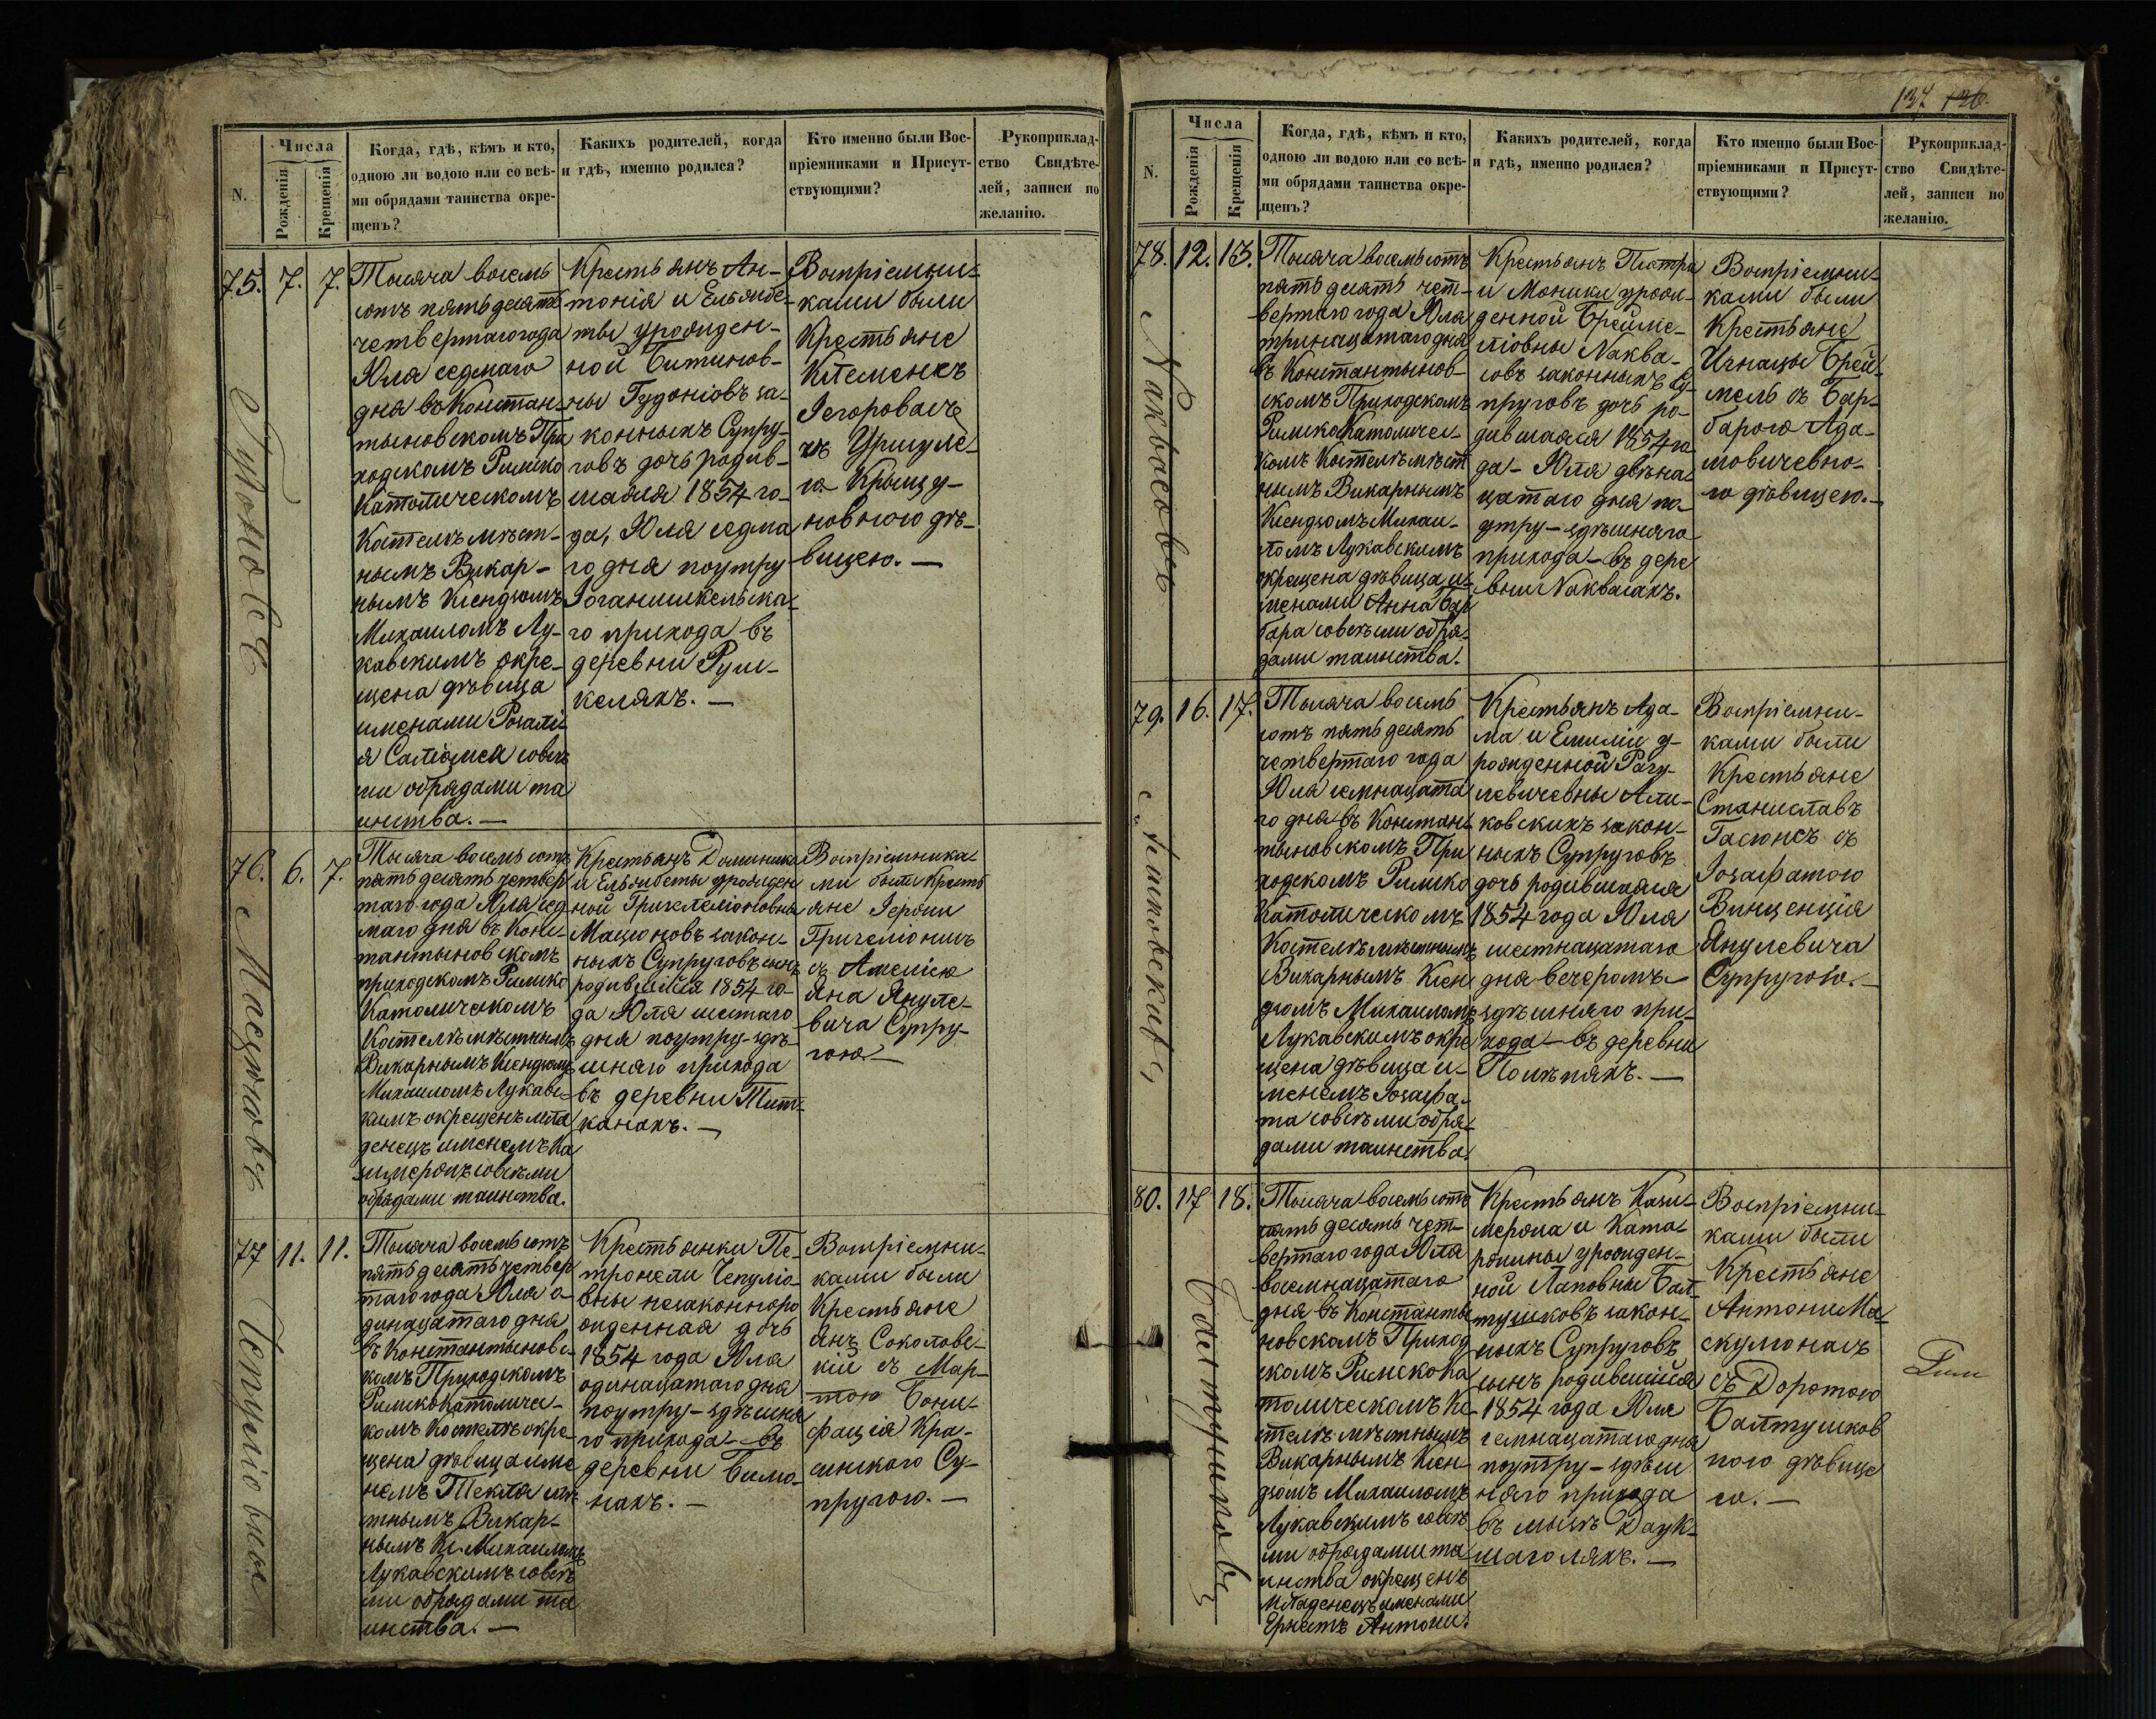 N.
Числа
Рожденія
Крещенія
Когда, гдѣ, кѣмъ и кто,
одною ли водою или со всѣ-
ми обрядами таинства окре-
щенъ?
Какихъ родителей, когда
и гдѣ, именно родился?
Кто именно были Вос-
пріемниками и Присут-
ствующими?
Рукоприклад-
ство Свидѣте-
лей, записи по
желанію.
75. 7. 7.
Тысяча восемь
сотъ пятьдесятъ
четвертаго года
Юля седмаго
дня въ Констан-
тыновскомъ При
ходскомъ Римско
Католическомъ
Костелѣ мѣст-
нымъ Викар-
нымъ Ксендзомъ
Михаиломъ Лу-
кавскимъ окре-
щена дѣвица
именами Розалі-
я Саломея совсѣ
ми обрядами та
инства.—
Крестьянъ Ан-
тонія и Ельзбе-
ты урожден-
ной Битинов-
ны Гудонiовъ за-
конныхъ Супру-
говъ дочь родив-
шаяся 1854 го-
да, Юля седма
го дня поутру
Іоганишкельска-
го прихода въ
деревни Руш-
келяхъ.—
Воспріемни-
ками были
Крестьяне
Клеменсъ
съ Уршуле-
ю Крыщу-
новною дѣ-
вицею.—
76. 6. 7.
Мацюновъ
Тысяча восемь сотъ
пятьдесятъ четвер
таго года Юля сед
маго дня въ Конс-
тантыновскомъ
приходскомъ Римско
Католическомъ
Костелѣ мѣстнымъ
Викарнымъ Ксендзомъ
Михаиломъ Лукавс-
кимъ окрещенъ мла
денецъ именемъ Ка
зимеромъ совсѣми
обрядами таинства.
Крестьянъ Доминика
и Ельзбеты урожден
ной
Мацюновъ закон-
ныхъ Супруговъ сынъ
родившійся 1854 го-
да Юля шестаго
дня поутру—здѣ-
шняго прихода
въ деревни Тит-
канахъ.—
Воспріемника-
ми были Кресть
яне Героним
съ Амеліею
Яна Януле-
вича Супру-
гою—
77 11. 11.
Тысяча восемь сотъ
пятьдесятъ четвер
таго года Юля о-
динацатаго дня
въ Константыновс-
комъ Приходскомъ
Римско Католичес-
комъ Костелѣ окре-
щена дѣвица име
немъ Текля мѣ-
стнымъ Викар-
нымъ Кс. Михаиломъ
Лукавскимъ совсѣ
ми обрядами та
инства.—
Крестьянки Пе-
тронели Чепулiо-
вны незаконноро
жденная дочь
1854 года Юля
одинацатаго дня
поутру—здѣшня
го прихода—въ
деревни
Воспріемни-
ками были
Крестьяне
Янъ Соколовс-
кій съ Мар-
тою Бони-
фація Кра-
синскаго Су-
пругою.—
137 136.
N.
Числа
Рожденія
Крещенія
Когда, гдѣ, кѣмъ и кто,
одною ли водою или со всѣ-
ми обрядами таинства окре-
щенъ?
Какихъ родителей, когда
и гдѣ, именно родился?
Кто именно были Вос-
пріемниками и Присут-
ствующими?
Рукоприклад-
ство Свидѣте-
лей, записи по
желанію.
78. 12. 13.
Наквасовъ
Тысяча восемь сотъ
пять десятъ чет-
вертаго года Юля
тринацатаго дня
въ Константынов-
скомъ Приходскомъ
Римско Католичес-
комъ Костелѣ мѣст
нымъ Викарнымъ
Ксендзомъ Михаи-
ломъ Лукавскимъ
окрещена дѣвица и-
менами Анна Бар
бара совсѣми обря-
дами таинства.
Крестьянъ Петра
и Моники урож-
денной Бреймe-
лiовны Наква-
совъ законныхъ Су-
пруговъ дочь ро-
дившаяся 1854 го
да—Юля двѣна-
цатаго дня по-
утру—здѣшняго
прихода—въ дере
вни Наквасахъ.
Воспріемни-
ками были
Крестьяне
Игнацы Брей-
мель съ Бар-
барою Ада-
мовичевно-
ю дѣвицею.—
79. 16. 17.
Тысяча восемь
сотъ пять десятъ
четвертаго года
Юля семнацата
го дня въ Констан-
тыновскомъ При
ходскомъ Римско
Католическомъ
Костелѣ мѣстнымъ
Викарнымъ Ксен
дзомъ Михаиломъ
Лукавскимъ окре
щена дѣвица и-
менемъ Іозафа-
та совсѣми обря-
дами таинства.
Крестьянъ Ада-
ма и Емиліи у-
рожденной Рагу-
левичевны Али-
ковскихъ закон-
ныхъ Супруговъ
дочь родившаяся
1854 года Юля
шестнацатаго
дня вечеромъ—
здѣшняго при-
хода—въ деревни
Воспріемни-
ками были
Крестьяне
Станиславъ
Гасюнсъ съ
Іозафатою
Винценція
Янулевича
Супругою.—
80. 17 18.
Балтушковъ
Тысяча восемь сотъ
пять десятъ чет-
вертаго года Юля
восемнацатаго
дня въ Константы
новскомъ Приход
скомъ Римско Ка
толическомъ Ко
стелѣ мѣстнымъ
Викарнымъ Ксен-
дзомъ Михаиломъ
Лукавскимъ совсѣ
ми обрядами та
инства окрещенъ
Младенецъ именами
Ернестъ Антони.
Крестьянъ Кази-
мерома и Ката-
рыны урожден-
ной Лаповны Бал
тушковъ закон-
ныхъ Супруговъ
сынъ родившійся
1854 года Юля
семнацатаго дня
поутру—здѣш
няго прихода
въ мызѣ Даук-
шаголяхъ.—
Воспріемни-
ками были
Крестьяне
Антони Ма-
скулюнасъ
съ Доротою
Балтушков
ною дѣвице
ю.—